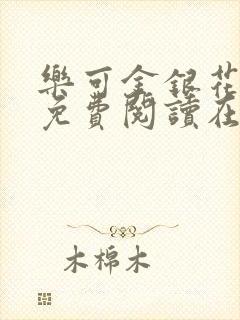 樂可金銀花
免費閱讀在
木棉木